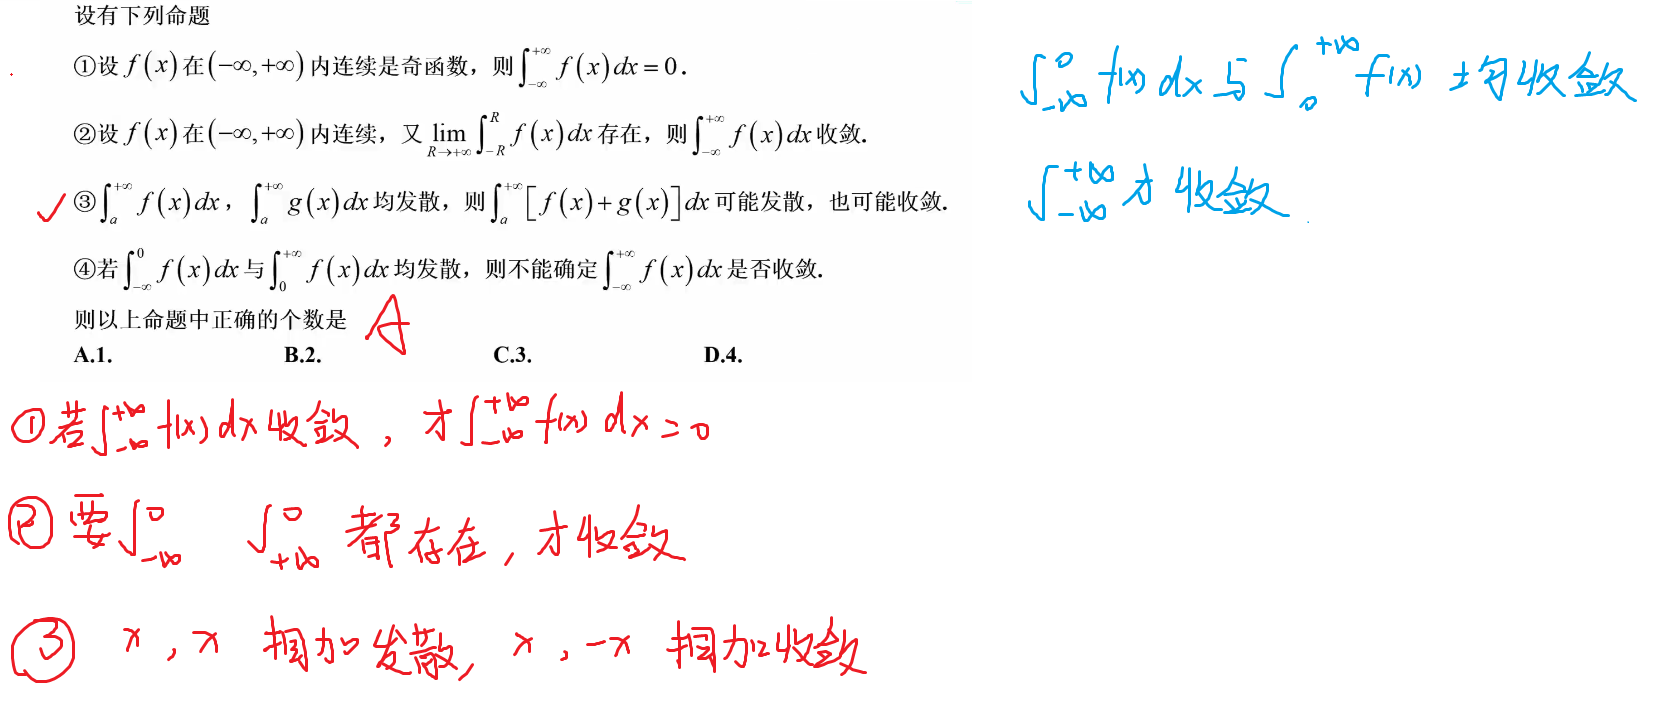 设有下列命题
①设 f(x) 在 (−∞,+∞) 内连续是奇函数，则 ∫_{−∞}^{+∞} f(x)dx = 0.
②设 f(x) 在 (−∞,+∞) 内连续，又 lim_{R→+∞} ∫_{−R}^{R} f(x)dx 存在，则 ∫_{−∞}^{+∞} f(x)dx 收敛.
③ ∫_{a}^{+∞} f(x)dx，∫_{a}^{+∞} g(x)dx 均发散，则 ∫_{a}^{+∞} [f(x)+g(x)]dx 可能发散，也可能收敛.
④若 ∫_{−∞}^{0} f(x)dx 与 ∫_{0}^{+∞} f(x)dx 均发散，则不能确定 ∫_{−∞}^{+∞} f(x)dx 是否收敛.
则以上命题中正确的个数是 A
A.1. B.2. C.3. D.4.
∫_{−∞}^{0} f(x)dx 与 ∫_{0}^{+∞} f(x) 均收敛
∫_{−∞}^{+∞} 才收敛
①若 ∫_{−∞}^{+∞} f(x)dx 收敛，才 ∫_{−∞}^{+∞} f(x)dx = 0
②要 ∫_{−∞}^{0} ∫_{+∞}^{0} 都存在，才收敛
③ x，x 相加发散，x，−x 相加收敛